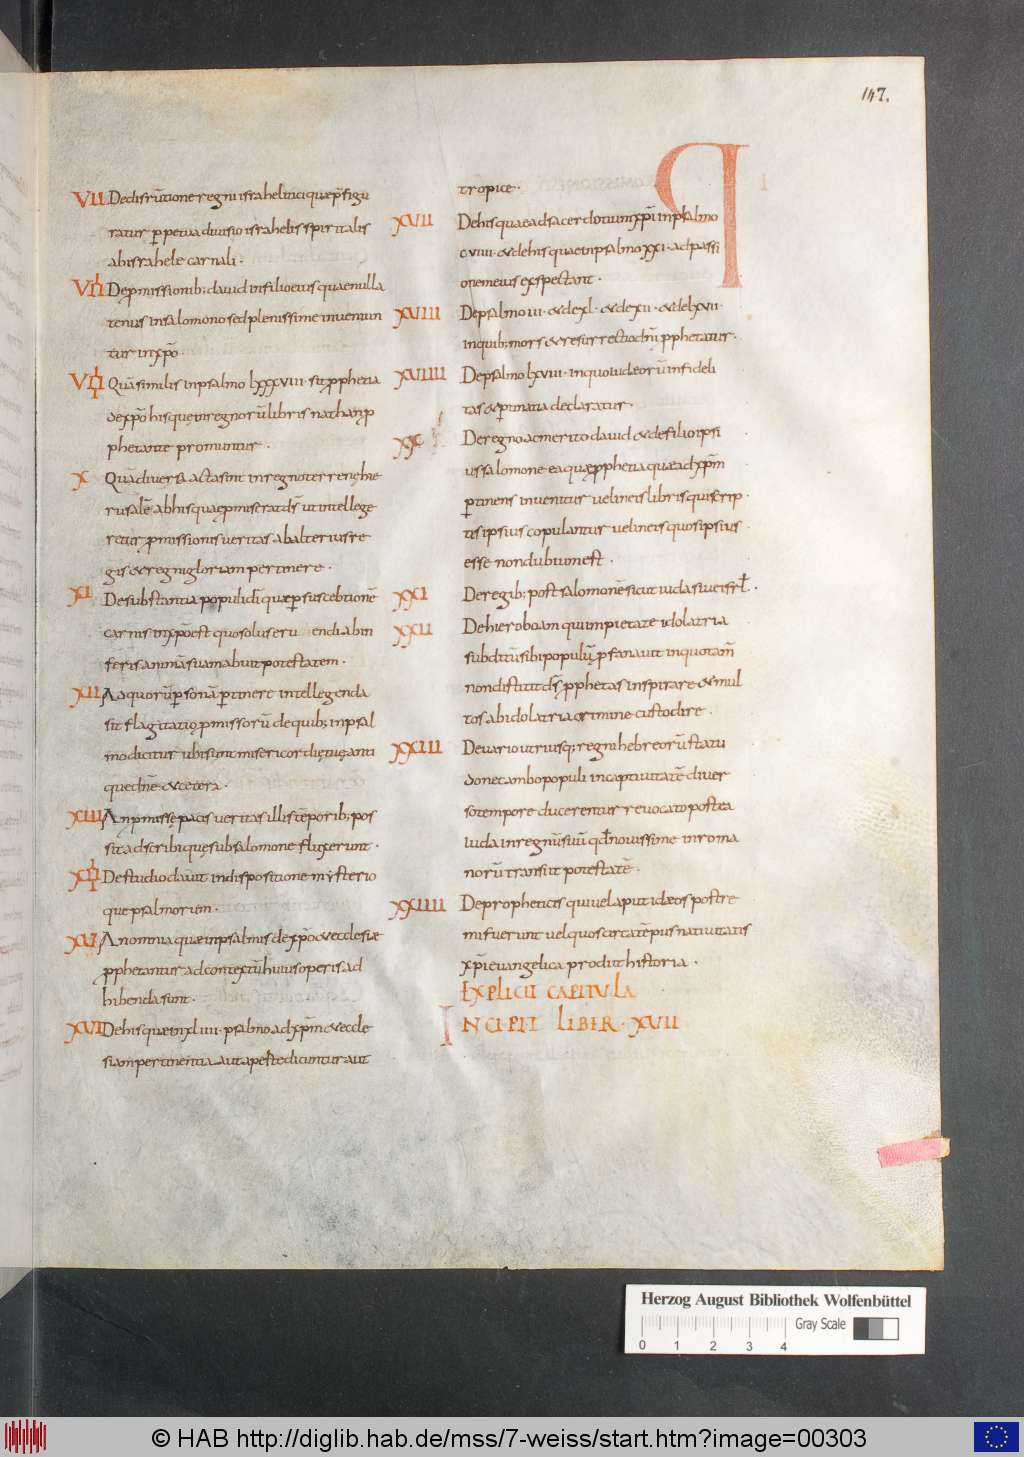 147.
VII De disrūtione regni israhelitici quae p̄figu
ratur ꝑpetua diuisio israhelis spiritalis
ab israhele carnali.
VIII De ꝓmissionib; dauid in filio eius quae nulla
tenus in salomono sed plenissime inuenun
tur in xp̄o.
VIIII Quā similis in psalmo lxxxviii. sit ꝓphetia
de xp̄o his quę in regnorū libris nathan ꝓ
phetante promuntur.
X Quā diuersa acta sint in regno terrenę hie
rusalē ab his quae ꝓmiserat d̄s ut intellege
retur ꝓmissionis ueritas ab alterius re
gis & regni gloriam pertinere.
XI De substantia populi dī quae ꝑ susceptionē
carnis in xp̄o est qui solus eru endi ab in
feris animā suam abuit potestatem.
XII Ad quorū ꝑsonā ꝑtinere intellegenda
sit flagitatio ꝓmissorū de quib; in psal
mo dicitur ubi sunt misericordię tuę anti
quę dn̄e & cetera.
XIII An ꝓmissę pacis ueritas illis tēporib; pos
sit adscribi quę sub salomone fluxerunt.
XIIII De studio dauit in dispositione mysterio
que psalmorum.
XV An omnia quae in psalmis de xp̄o & ecclesiae
ꝓphetantur ad contextū huius operis ad
hibenda sunt.
XVI De his quae in xliiii. psalmo ad xp̄m & eccle
siam pertinentia aut apęrte dicuntur aut
tropice.
XVII De his quae ad sacerdotium xp̄i in psalmo
cviiii. & de his quae in psalmo xxi. ad passi
onem eius exspectant.
XVIII De psalmo iii. & de xl. & de xii. & de lxvii.
in quib; mors & resurrectio dn̄i ꝓphetatur.
XVIIII De psalmo lxviii. in quo iudeorū infideli
tas & ꝑtinatia declaratur.
XX De regno ac merito dauid & de filio ipsi
us salomone ea quę ꝓphetia quae ad xp̄m
ꝑtinens inuenitur uel in eis libris qui scrip
tis ipsius copulantur uel in eis quos ipsius
esse non dubium est.
XXI De regib; post salomonē sicut iuda siue isrl̄.
XXII De hieroboam qui impietate idolatria
subditū sibi populū ꝓfanauit in quo tam̄
non distitit d̄s ꝓphetas inspirare & mul
tos ab idolatria crimine custodire.
XXIII De uario utriusq; regni hebreorū statu
donec ambo populi in captiuitatē diuer
so tempore ducerentur reuocato postea
iuda in regnū suū qd̄ nouissime in roma
norū transiit potestatē.
XXIIII De propheticis qui uel aput iudęos postre
mi fuerunt uel quos circa tēpus natiuitatis
xp̄i euangelica prodit historia.
EXPLICIT CAPITULA
INCIPIT LIBER. XVII
P
Herzog August Bibliothek Wolfenbüttel
Gray Scale
0 1 2 3 4
© HAB http://diglib.hab.de/mss/7-weiss/start.htm?image=00303